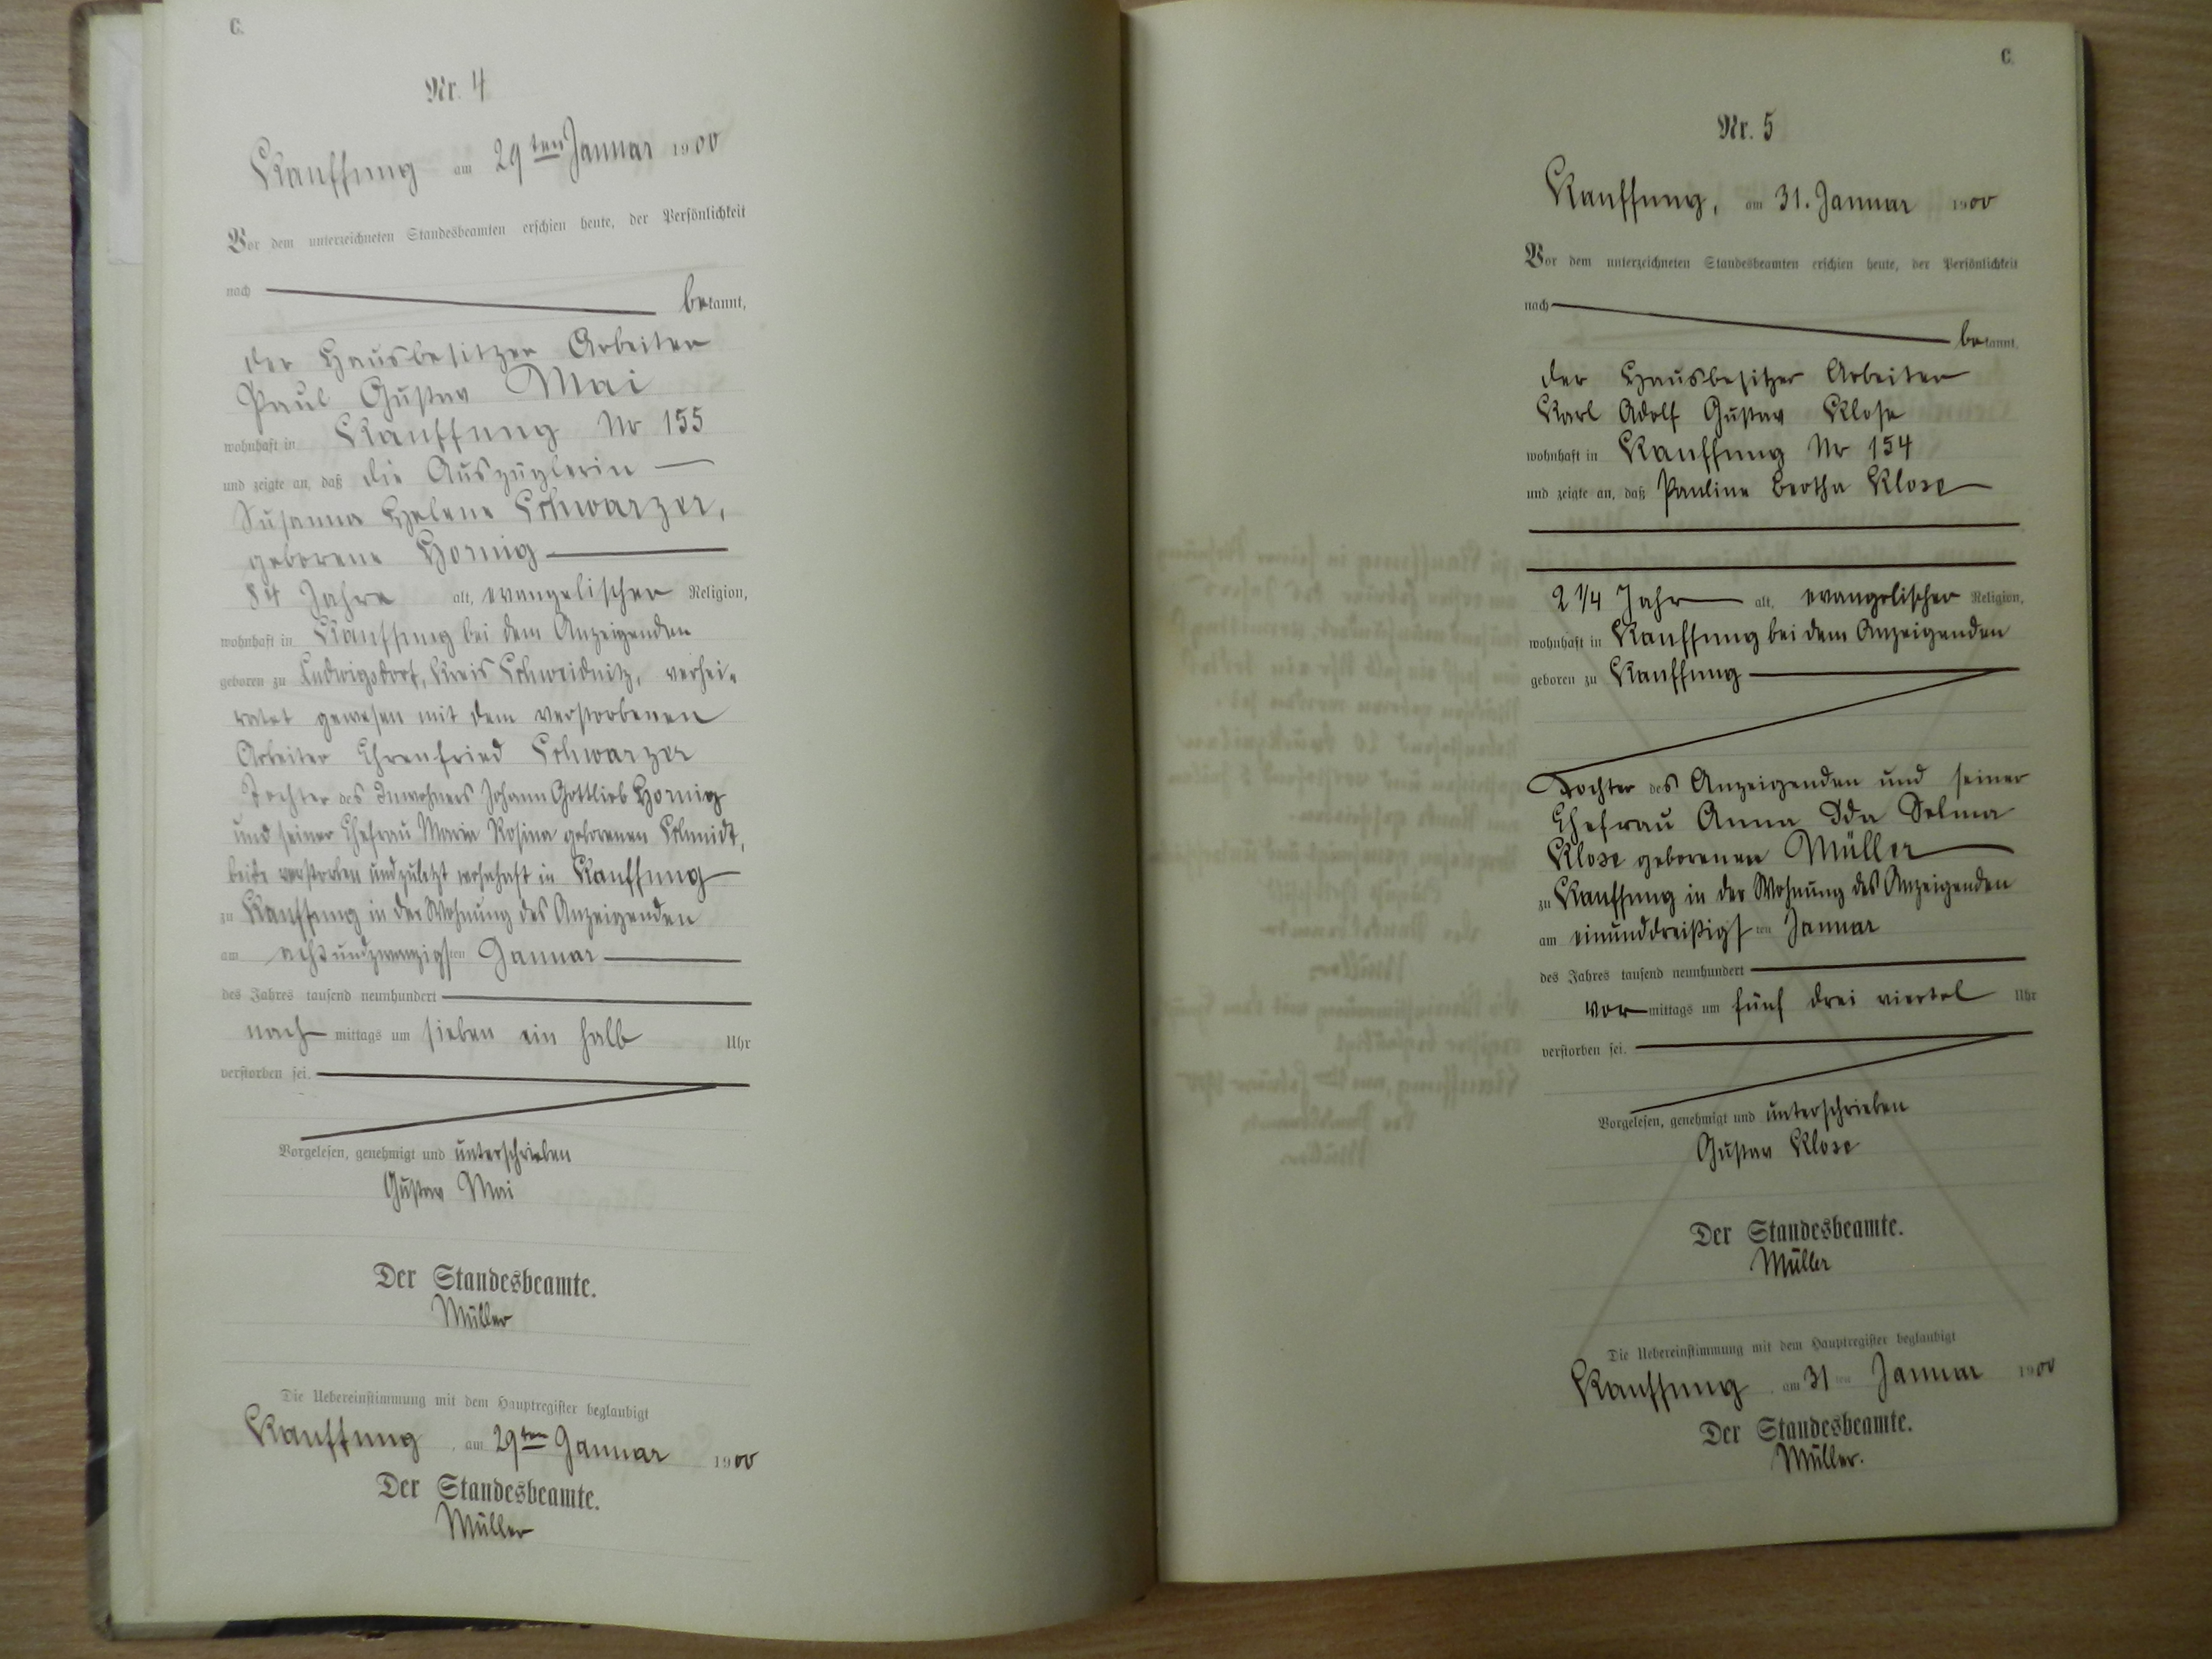 C.
Nr. 4
Kauffung am 29ten Januar 1900
Vor dem unterzeichneten Standesbeamten erschien heute, der Persönlichkeit
nach
bekannt,
der Hausbesitzer Arbeiter
Paul Gustav Mai
wohnhaft in Kauffung Nr 155
und zeigte an, daß die Auszüglerin
Susanna Helene Schwarzer,
geborene Hornig
84 Jahre alt, evangelischer Religion,
wohnhaft in Kauffung bei dem Anzeigenden
geboren zu Ludwigsdorf, Kreis Schweidnitz, verhei-
ratet gewesen mit dem verstorbenen
Arbeiter Ehrenfried Schwarzer
Tochter des Inwohners Johann Gottlieb Hornig
und seiner Ehefrau Maria Rosina geborenen Schmidt,
beide verstorben und zuletzt wohnhaft in Kauffung
zu Kauffung in der Wohnung des Anzeigenden
am achtundzwanzigsten Januar
des Jahres tausend neunhundert
nachmittags um sieben ein halb Uhr
verstorben sei.
Vorgelesen, genehmigt und unterschrieben
Gustav Mai
Der Standesbeamte.
Müller
Die Uebereinstimmung mit dem Hauptregister beglaubigt
Kauffung, am 29ten Januar 1900
Der Standesbeamte.
Müller
C.
Nr. 5
Kauffung, am 31. Januar 1900
Vor dem unterzeichneten Standesbeamten erschien heute, der Persönlichkeit
nach
bekannt,
der Hausbesitzer Arbeiter
Karl Adolf Gustav Klose
wohnhaft in Kauffung Nr 154
und zeigte an, daß Pauline Bertha Klose
2 1/4 Jahr alt, evangelischer Religion,
wohnhaft in Kauffung bei dem Anzeigenden
geboren zu Kauffung
Tochter des Anzeigenden und seiner
Ehefrau Anna Ida Selma
Klose geborenen Müller
zu Kauffung in der Wohnung des Anzeigenden
am einunddreißigsten Januar
des Jahres tausend neunhundert
vormittags um fünf drei viertel Uhr
verstorben sei.
Vorgelesen, genehmigt und unterschrieben
Gustav Klose
Der Standesbeamte.
Müller
Die Uebereinstimmung mit dem Hauptregister beglaubigt
Kauffung, am 31ten Januar 1900
Der Standesbeamte.
Müller.